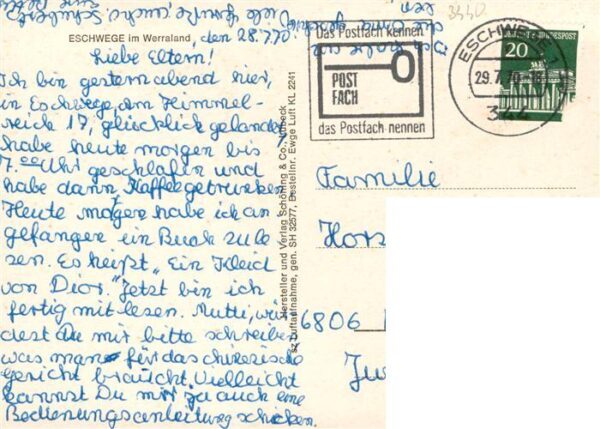 ESCHWEGE im Werraland
, den 28.7.70.
Liebe Eltern!
Ich bin gestern abend hier,
in Eschwege, am Himmel-
reich 17, glücklich gelandet
habe heute morgen bis
7.00 Uhr geschlafen und
habe dann Kaffee getrunken.
Heute morgen habe ich an
gefangen ein Buch zu le
sen. Es heißt „Ein Kleid
von Dior." Jetzt bin ich
fertig mit lesen. Mutti, wür
dest Du mir bitte schreiben
was man für das chinesische
gericht braucht. Vielleicht
kannst Du mir ja auch eine
Bedienungsanleitung schicken.
Viele
Hersteller und Verlag Schöning & Co., Lübeck
Luftaufnahme, gen. SH 32577, Bestellnr. Ewge Luft KL 2241
3440
Das Postfach kennen
POST
FACH
das Postfach nennen
ESCHWEGE 1
29.7.70
344
DEUTSCHE BUNDESPOST
20
Familie
Hors
6806